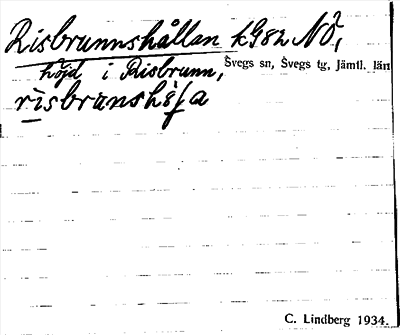 Risbrunnshållan k982 NÖ,
höjd i Risbrunn, Svegs sn, Svegs tg, Jämtl. län
C. Lindberg 1934.